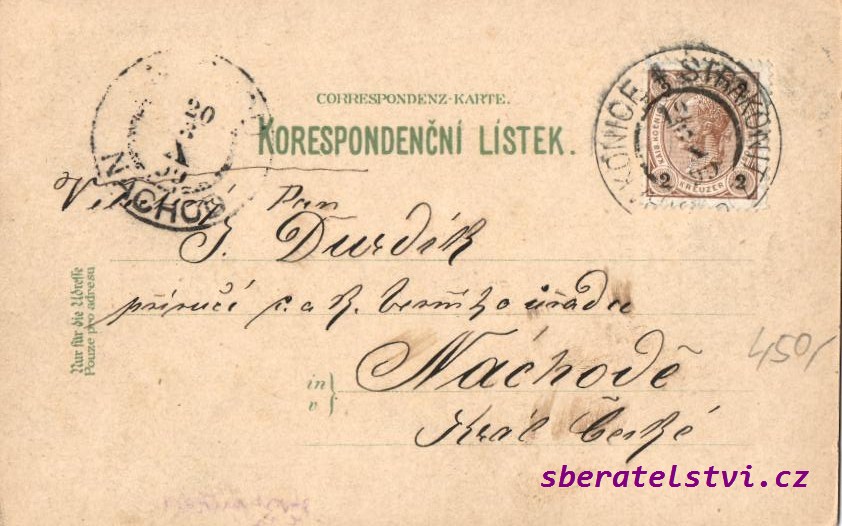 CORRESPONDENZ-KARTE.
KORESPONDENČNÍ LÍSTEK.
STRAKONIT
KONICE
2 KREUZER 2
NÁCHOD
20
Pan
J. Durdík
příručí c. a k. berního úřadu
in
v
Náchodě
Král České
Nur für die Adresse
Pouze pro adresu
450,-
sberatelstvi.cz